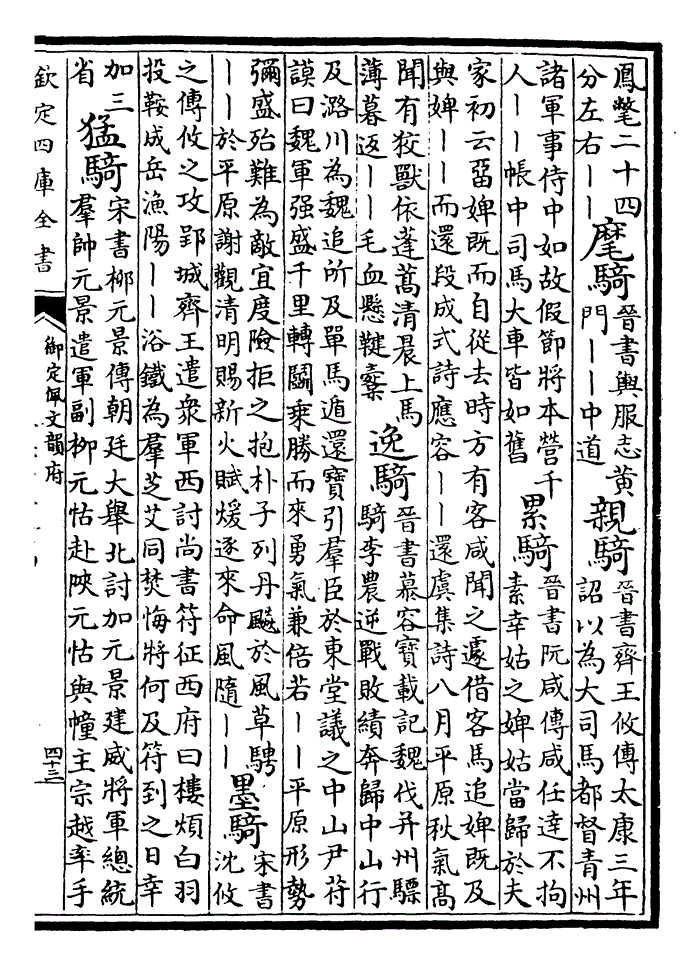 鳳氅二十四
分左右丨丨
麾騎
晉書輿服志黃
門丨丨中道
親騎
晉書齊王攸傳太康三年
詔以為大司馬都督青州
諸軍事侍中如故假節將本營千
人丨丨帳中司馬大車皆如舊
累騎
晉書阮咸傳咸任達不拘
素幸姑之婢姑當歸於夫
家初云留婢既而自從去時方有客咸聞之遽借客馬追婢既及
與婢丨丨而還段成式詩應容丨丨還虞集詩八月平原秋氣高
聞有狡獸依蓬蒿清晨上馬
薄暮返丨丨毛血懸鞬櫜
逸騎
晉書慕容寶載記魏伐并州驃
騎李農逆戰敗績奔歸中山行
及潞川為魏追所及單馬遁還寶引羣臣於東堂議之中山尹苻
謨曰魏軍强盛千里轉鬭乘勝而來勇氣兼倍若丨丨平原形勢
彌盛殆難為敵宜度險拒之抱朴子列丹飈於風草騁
丨丨於平原謝觀清明賜新火賦煖逐來命風隨丨丨
墨騎
宋書
沈攸
之傳攸之攻郢城齊王遣衆軍西討尚書符征西府曰樓煩白羽
投鞍成岳漁陽丨丨浴鐵為羣芝艾同焚悔將何及符到之日幸
加三
省
猛騎
宋書柳元景傳朝廷大舉北討加元景建威將軍總統
羣帥元景遣軍副柳元怙赴陝元怙與幢主宗越率手
欽定四庫全書
御定佩文韻府
四十三